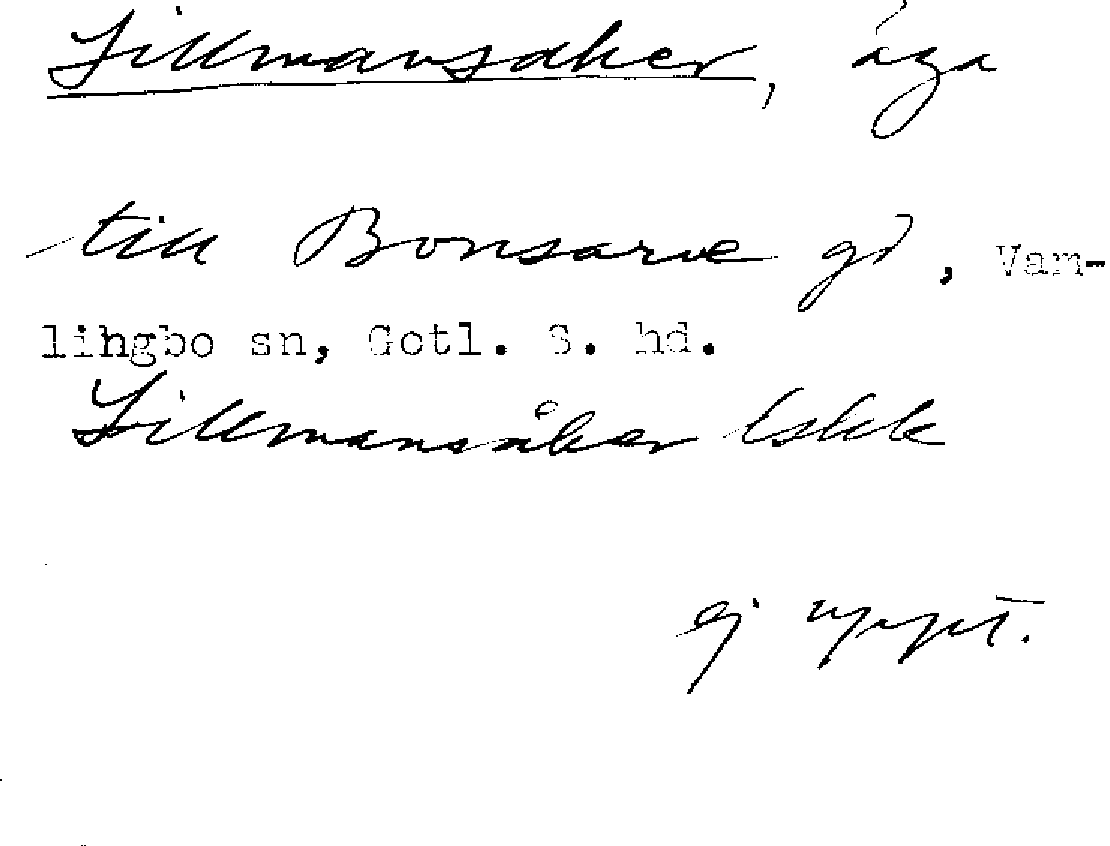 Lillmansaker, äga
till Bonsarve gd, Vam-
lingbo sn, Gotl. S. hd.
Lillmansåker lskk
ej uppt.